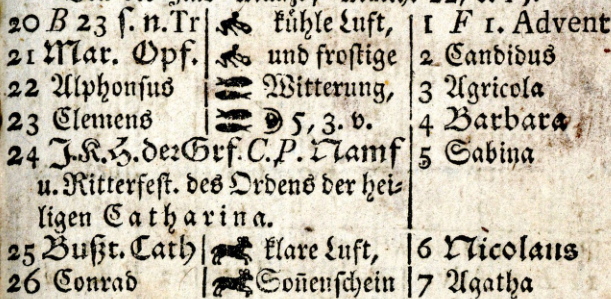 20 B 23 s. n. Tr kühle Luft, 1 F 1. Advent
21 Mar. Opf. und frostige 2 Candidus
22 Alphonsus Witterung, 3 Agricola
23 Clemens 5, 3. v. 4 Barbara
24 J. K. H. der Grf. C. P. Namf 5 Sabina
u. Ritterfest. des Ordens der hei⸗
ligen Catharina.
25 Bußt. Cath klare Luft, 6 Nicolaus
26 Conrad Soñenschein 7 Agatha